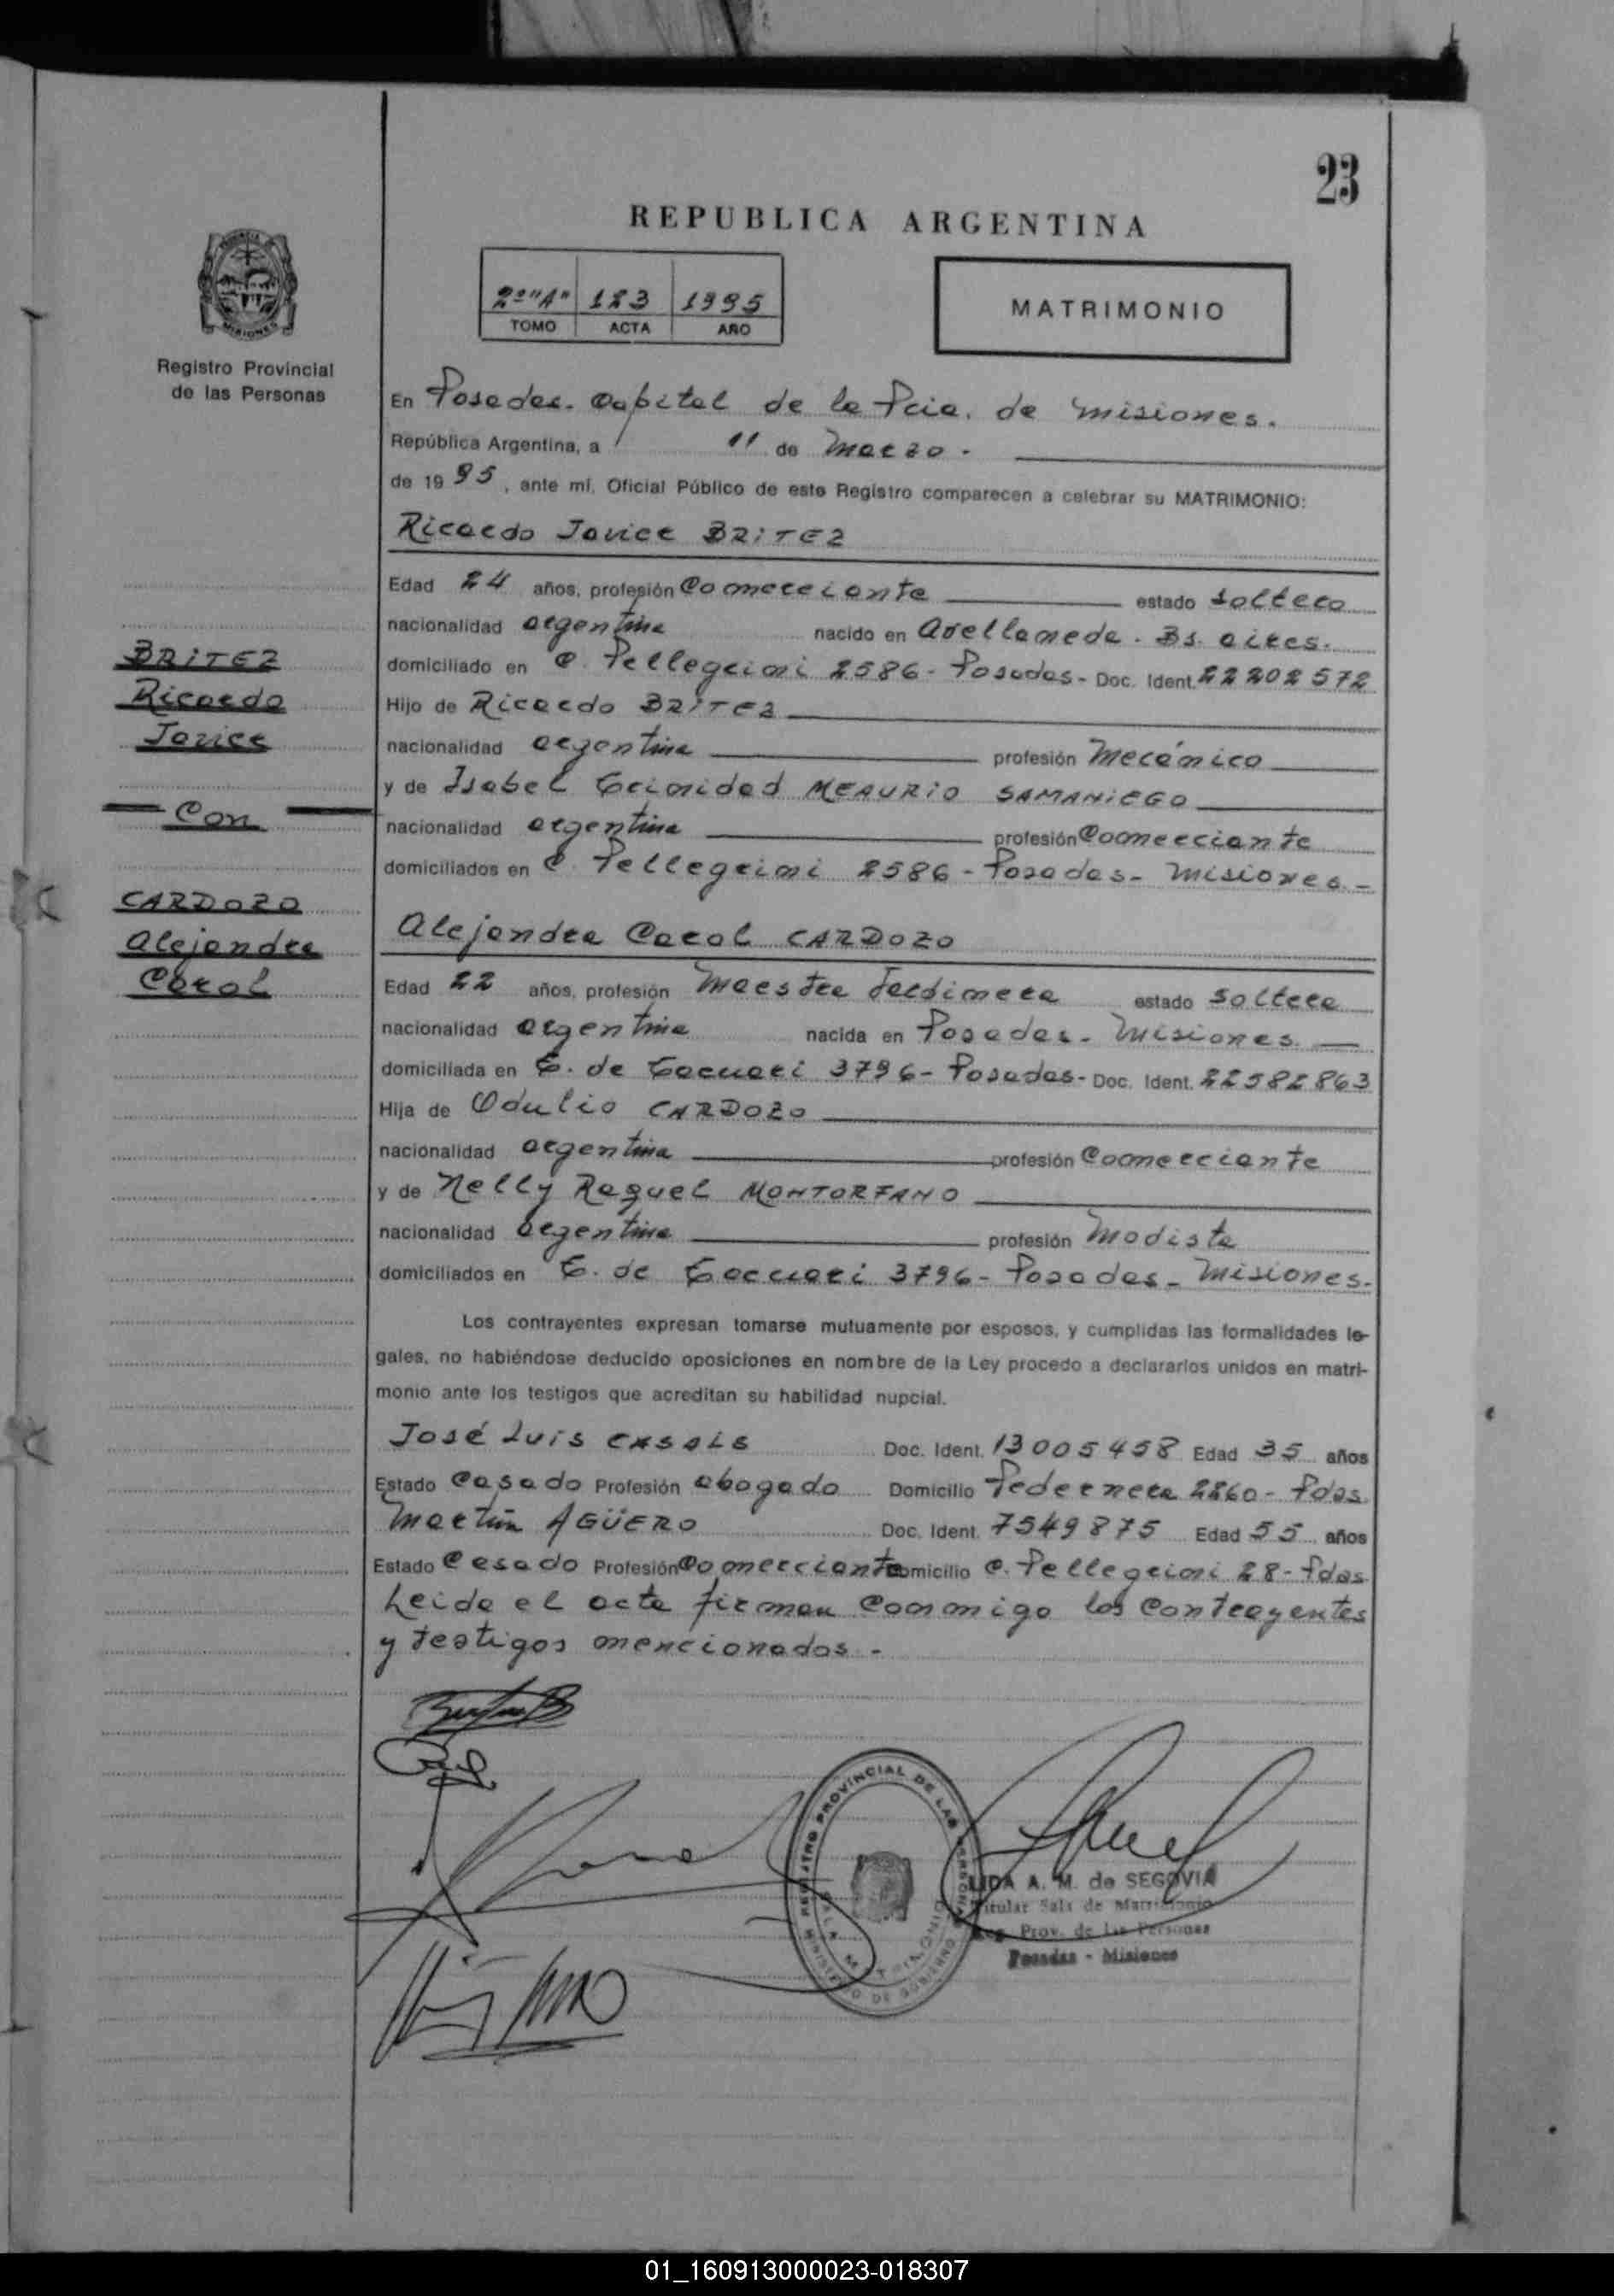 23
REPUBLICA ARGENTINA
2º "A" 123 1995
TOMO ACTA AÑO
MATRIMONIO
Registro Provincial
de las Personas
En Posadas. Capital de la Pcia. de Misiones.
República Argentina, a 11 de Marzo.
de 1995, ante mí, Oficial Público de este Registro comparecen a celebrar su MATRIMONIO:
Ricardo Javier BRITEZ
Edad 24 años, profesión Comerciante estado soltero
nacionalidad argentina nacido en Avellaneda. Bs. aires.
domiciliado en C. Pellegrini 2586 - Posadas - Doc. Ident. 22202572
Hijo de Ricardo BRITEZ
nacionalidad argentina profesión Mecánico
y de Isabel Trinidad MEAURIO SAMANIEGO
nacionalidad argentina profesión Comerciante
domiciliados en C. Pellegrini 2586 - Posadas - Misiones. -
BRITEZ
Ricardo
Javier
Con
CARDOZO
Alejandra
Carol
Alejandra Carol CARDOZO
Edad 22 años, profesión Maestra Jardinera estado soltera
nacionalidad argentina nacida en Posadas - Misiones.
domiciliada en T. de Tacuarí 3796 - Posadas - Doc. Ident. 22582863
Hija de Odulio CARDOZO
nacionalidad argentina profesión Comerciante
y de Nelly Raquel MONTORFANO
nacionalidad argentina profesión Modista
domiciliados en T. de Tacuarí 3796 - Posadas - Misiones.
Los contrayentes expresan tomarse mutuamente por esposos, y cumplidas las formalidades le-
gales, no habiéndose deducido oposiciones en nombre de la Ley procedo a declararlos unidos en matri-
monio ante los testigos que acreditan su habilidad nupcial.
José Luis CASALS Doc. Ident. 13005458 Edad 35 años
Estado Casado Profesión abogado Domicilio Pedernera 2260 - Pdas.
Martín AGÜERO Doc. Ident. 7549875 Edad 55 años
Estado Casado Profesión Comerciante Domicilio C. Pellegrini 28 - Pdas
Leida el acta firman conmigo los contrayentes
y testigos mencionados. -
REGISTRO PROVINCIAL DE LAS PERSONAS
MINISTERIO DE GOBIERNO
SALA MATRIMONIO
LIDA A. M. de SEGOVIA
Titular Sala de Matrimonio
Reg. Prov. de las Personas
Posadas - Misiones
01_160913000023-018307